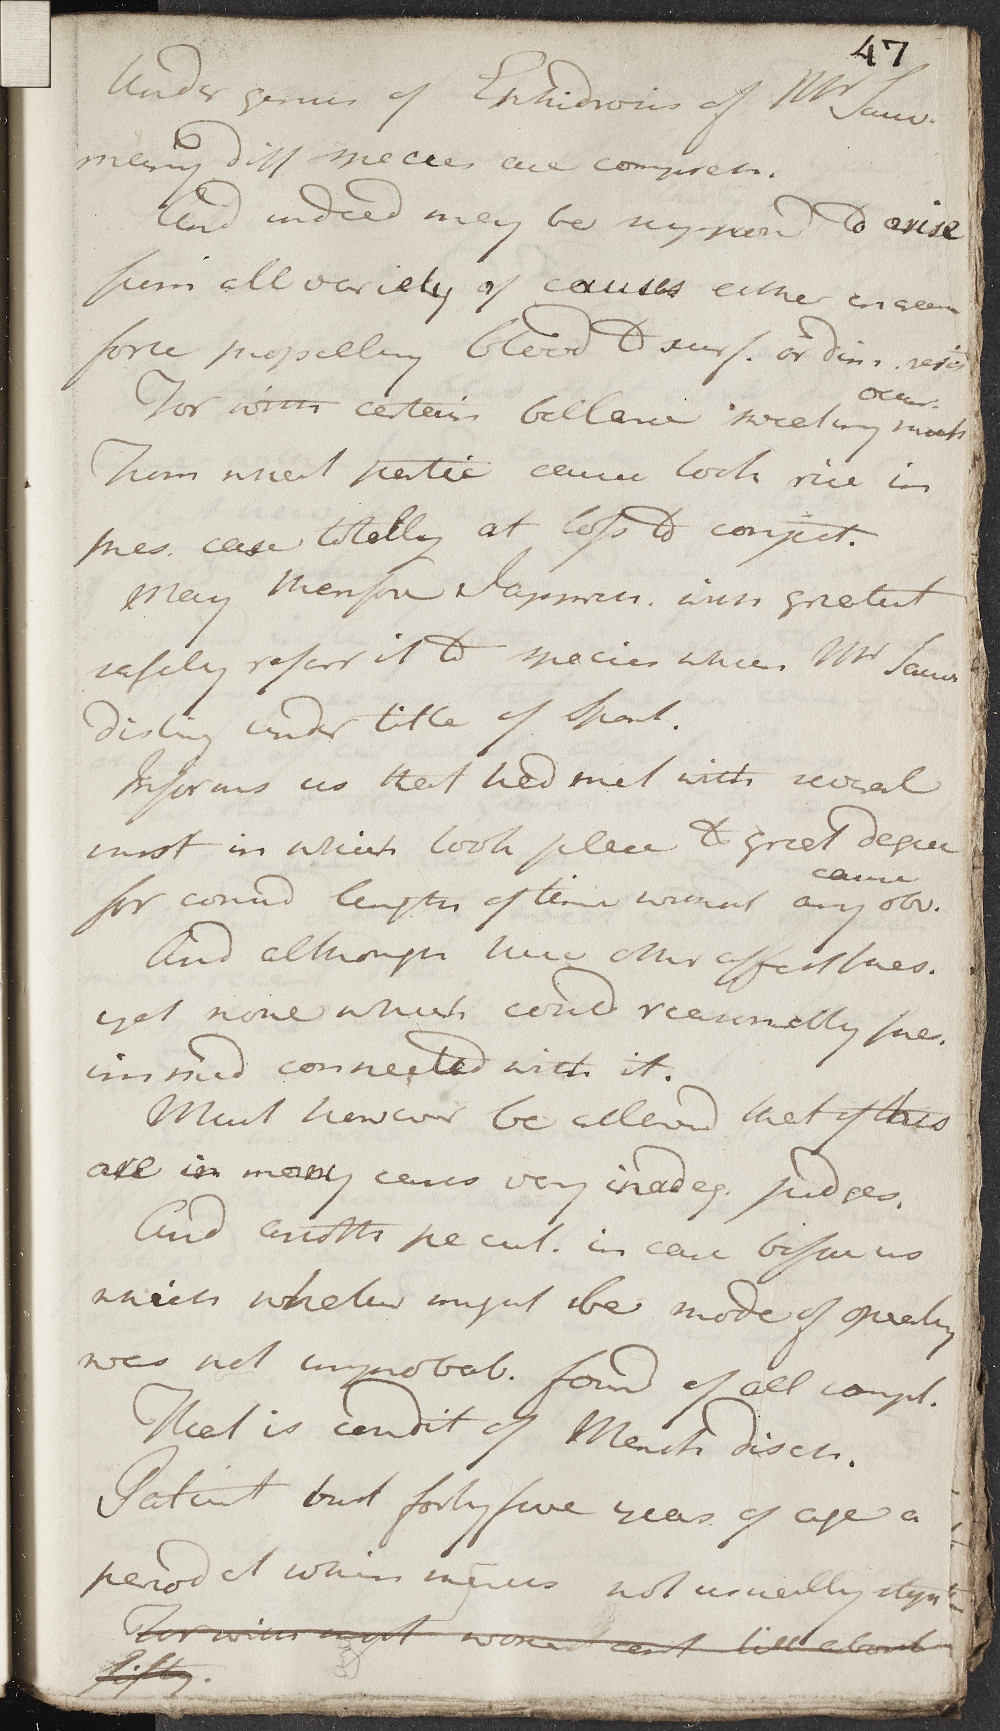 47
Under genus of Ephidrosis of Mr Sauv.
many diff species are compreh.
And indeed may be suppos'd to arise
from all variety of causes either increas
force propelling blood to surf. or dim. resis
For with certain ballance sweating much
occur.
From what partic cause took rise in
pres. case totally at loss to conject.
May therefore I apprehen. with greatest
safety referr it to species which Mr Sauv
disting under title of Spont.
Informs us that had met with several
inst in which took place to great degree
for consid length of time without any obv.
cause
And although here other affect pres.
yet none which could reasonably pres.
immed connected with it.
Must however be allowed that of this
are in many cases very inadeq. judges.
And another pecul. in case before us
which whatever might be mode of operating
was not improbab. found of all compl.
That is condit of Menst disch.
Patient but forty five years of age a
period at which menses not usually stop
For with most women cont till about
fifty.